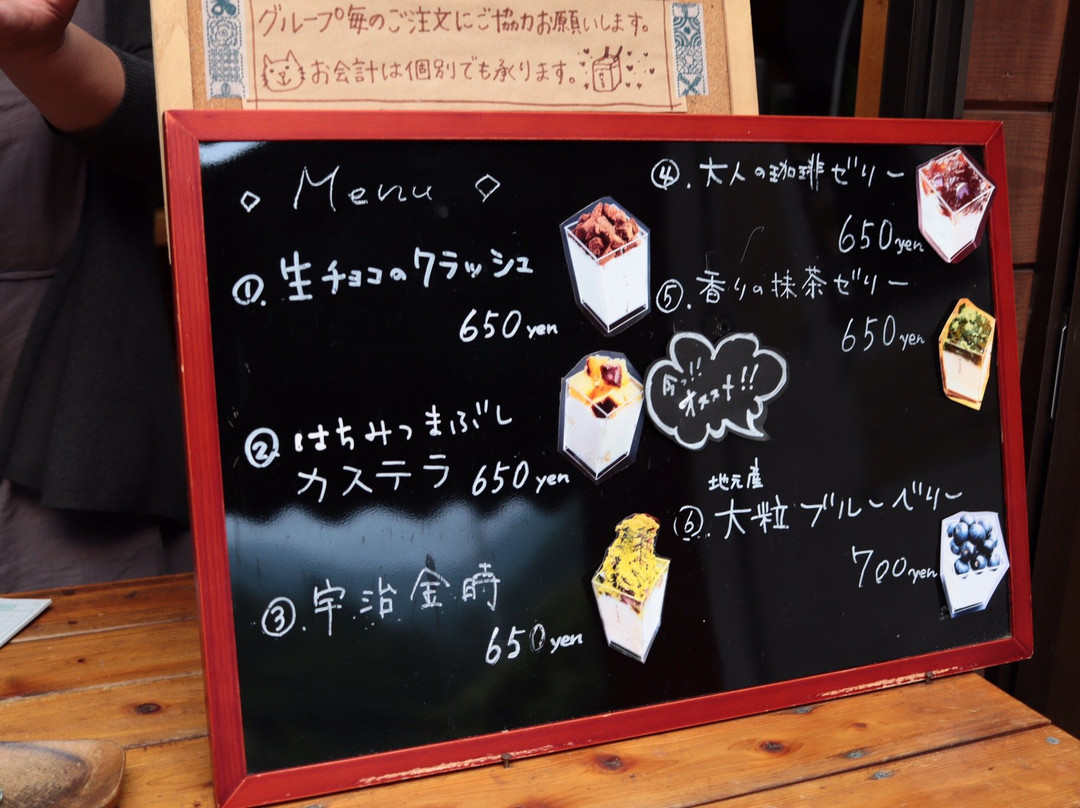 グループ毎のご注文にご協力お願いします。
お会計は個別でも承ります。
◇ Menu ◇
①. 生チョコのクラッシュ
650 yen
② はちみつまぶし
カステラ 650 yen
③. 宇治金時
650 yen
④. 大人の珈琲ゼリー
650 yen
⑤. 香りの抹茶ゼリー
650 yen
今っ!!
オススメ!!
地元産
⑥. 大粒ブルーベリー
700 yen